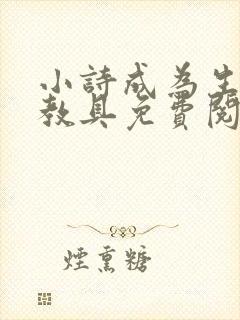 小詩成為生
教具免費閱
煙熏糖